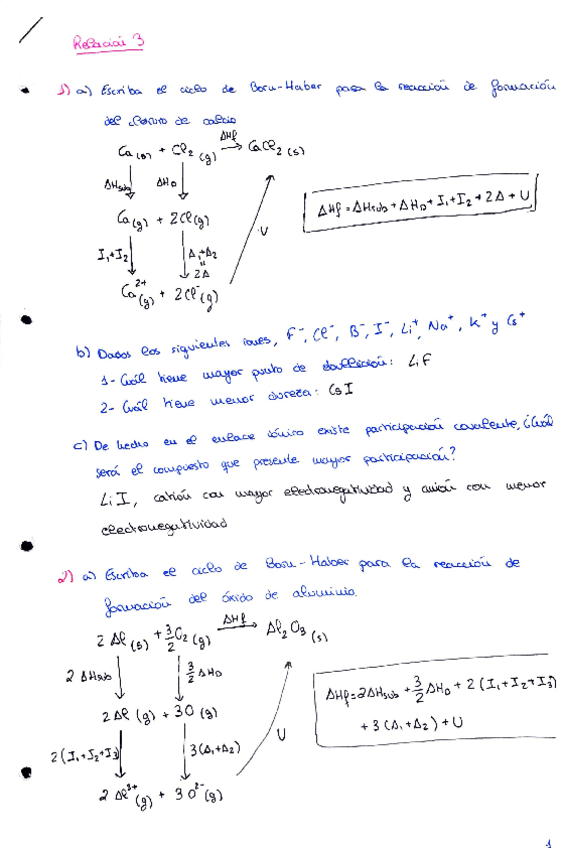 Relación 3
1) a) Escriba el ciclo de Born-Haber para la reacción de formación
del cloruro de calcio
Ca(s) + Cl2 (g) → ΔHf CaCl2 (s)
ΔHsub ΔHD
Ca(g) + 2Cl(g)
ΔHf = ΔHsub + ΔHD + I1 + I2 + 2A + U
I1+I2 A1+A2 U
=
2A
Ca2+(g) + 2Cl-(g)
b) Dados los siguientes iones, F-, Cl-, B-, I-, Li+, Na+, K+ y Cs+
1- Cuál tiene mayor punto de ebullición: LiF
2- Cuál tiene menor dureza: CsI
c) De hecho en el enlace iónico existe participación covalente, ¿Cuál
será el compuesto que presente mayor participación?
LiI, catión con mayor electronegatividad y anión con menor
electronegatividad
2) a) Escriba el ciclo de Born-Haber para la reacción de
formación del óxido de aluminio.
2 Al(s) + 3/2 O2 (g) → ΔHf Al2O3 (s)
2 ΔHsub 3/2 ΔHD
2 Al (g) + 3O (g)
ΔHf = 2ΔHsub + 3/2 ΔHD + 2 (I1+I2+I3)
+ 3 (A1+A2) + U
2(I1+I2+I3) 3(A1+A2) U
2 Al3+(g) + 3 O2-(g)
1